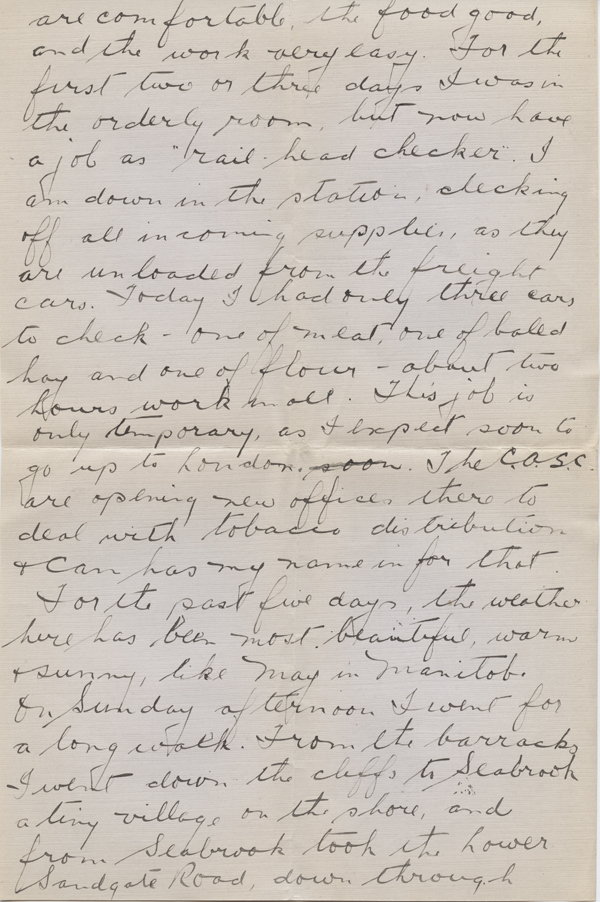 are comfortable, the food good,
and the work very easy. For the
first two or three days I was in
the orderly room, but now have
a job as "rail-head checker". I
am down in the station, checking
off all incoming supplies, as they
are unloaded from the freight
cars. Today I had only three cars
to check - one of meat, one of baled
hay and one of flour - about two
hours work in all. This job is
only temporary, as I expect soon to
go up to London, soon. The C.A.S.C.
are opening new offices there to
deal with tobacco distribution
+ Cam has my name in for that.
For the past five days, the weather
here has been most beautiful, warm
+ sunny, like May in Manitob.
On Sunday afternoon I went for
a long walk. From the barracks
I went down the cliffs to Seabrook
a tiny village on the shore, and
from Seabrook took the Lower
Sandgate Road, down through